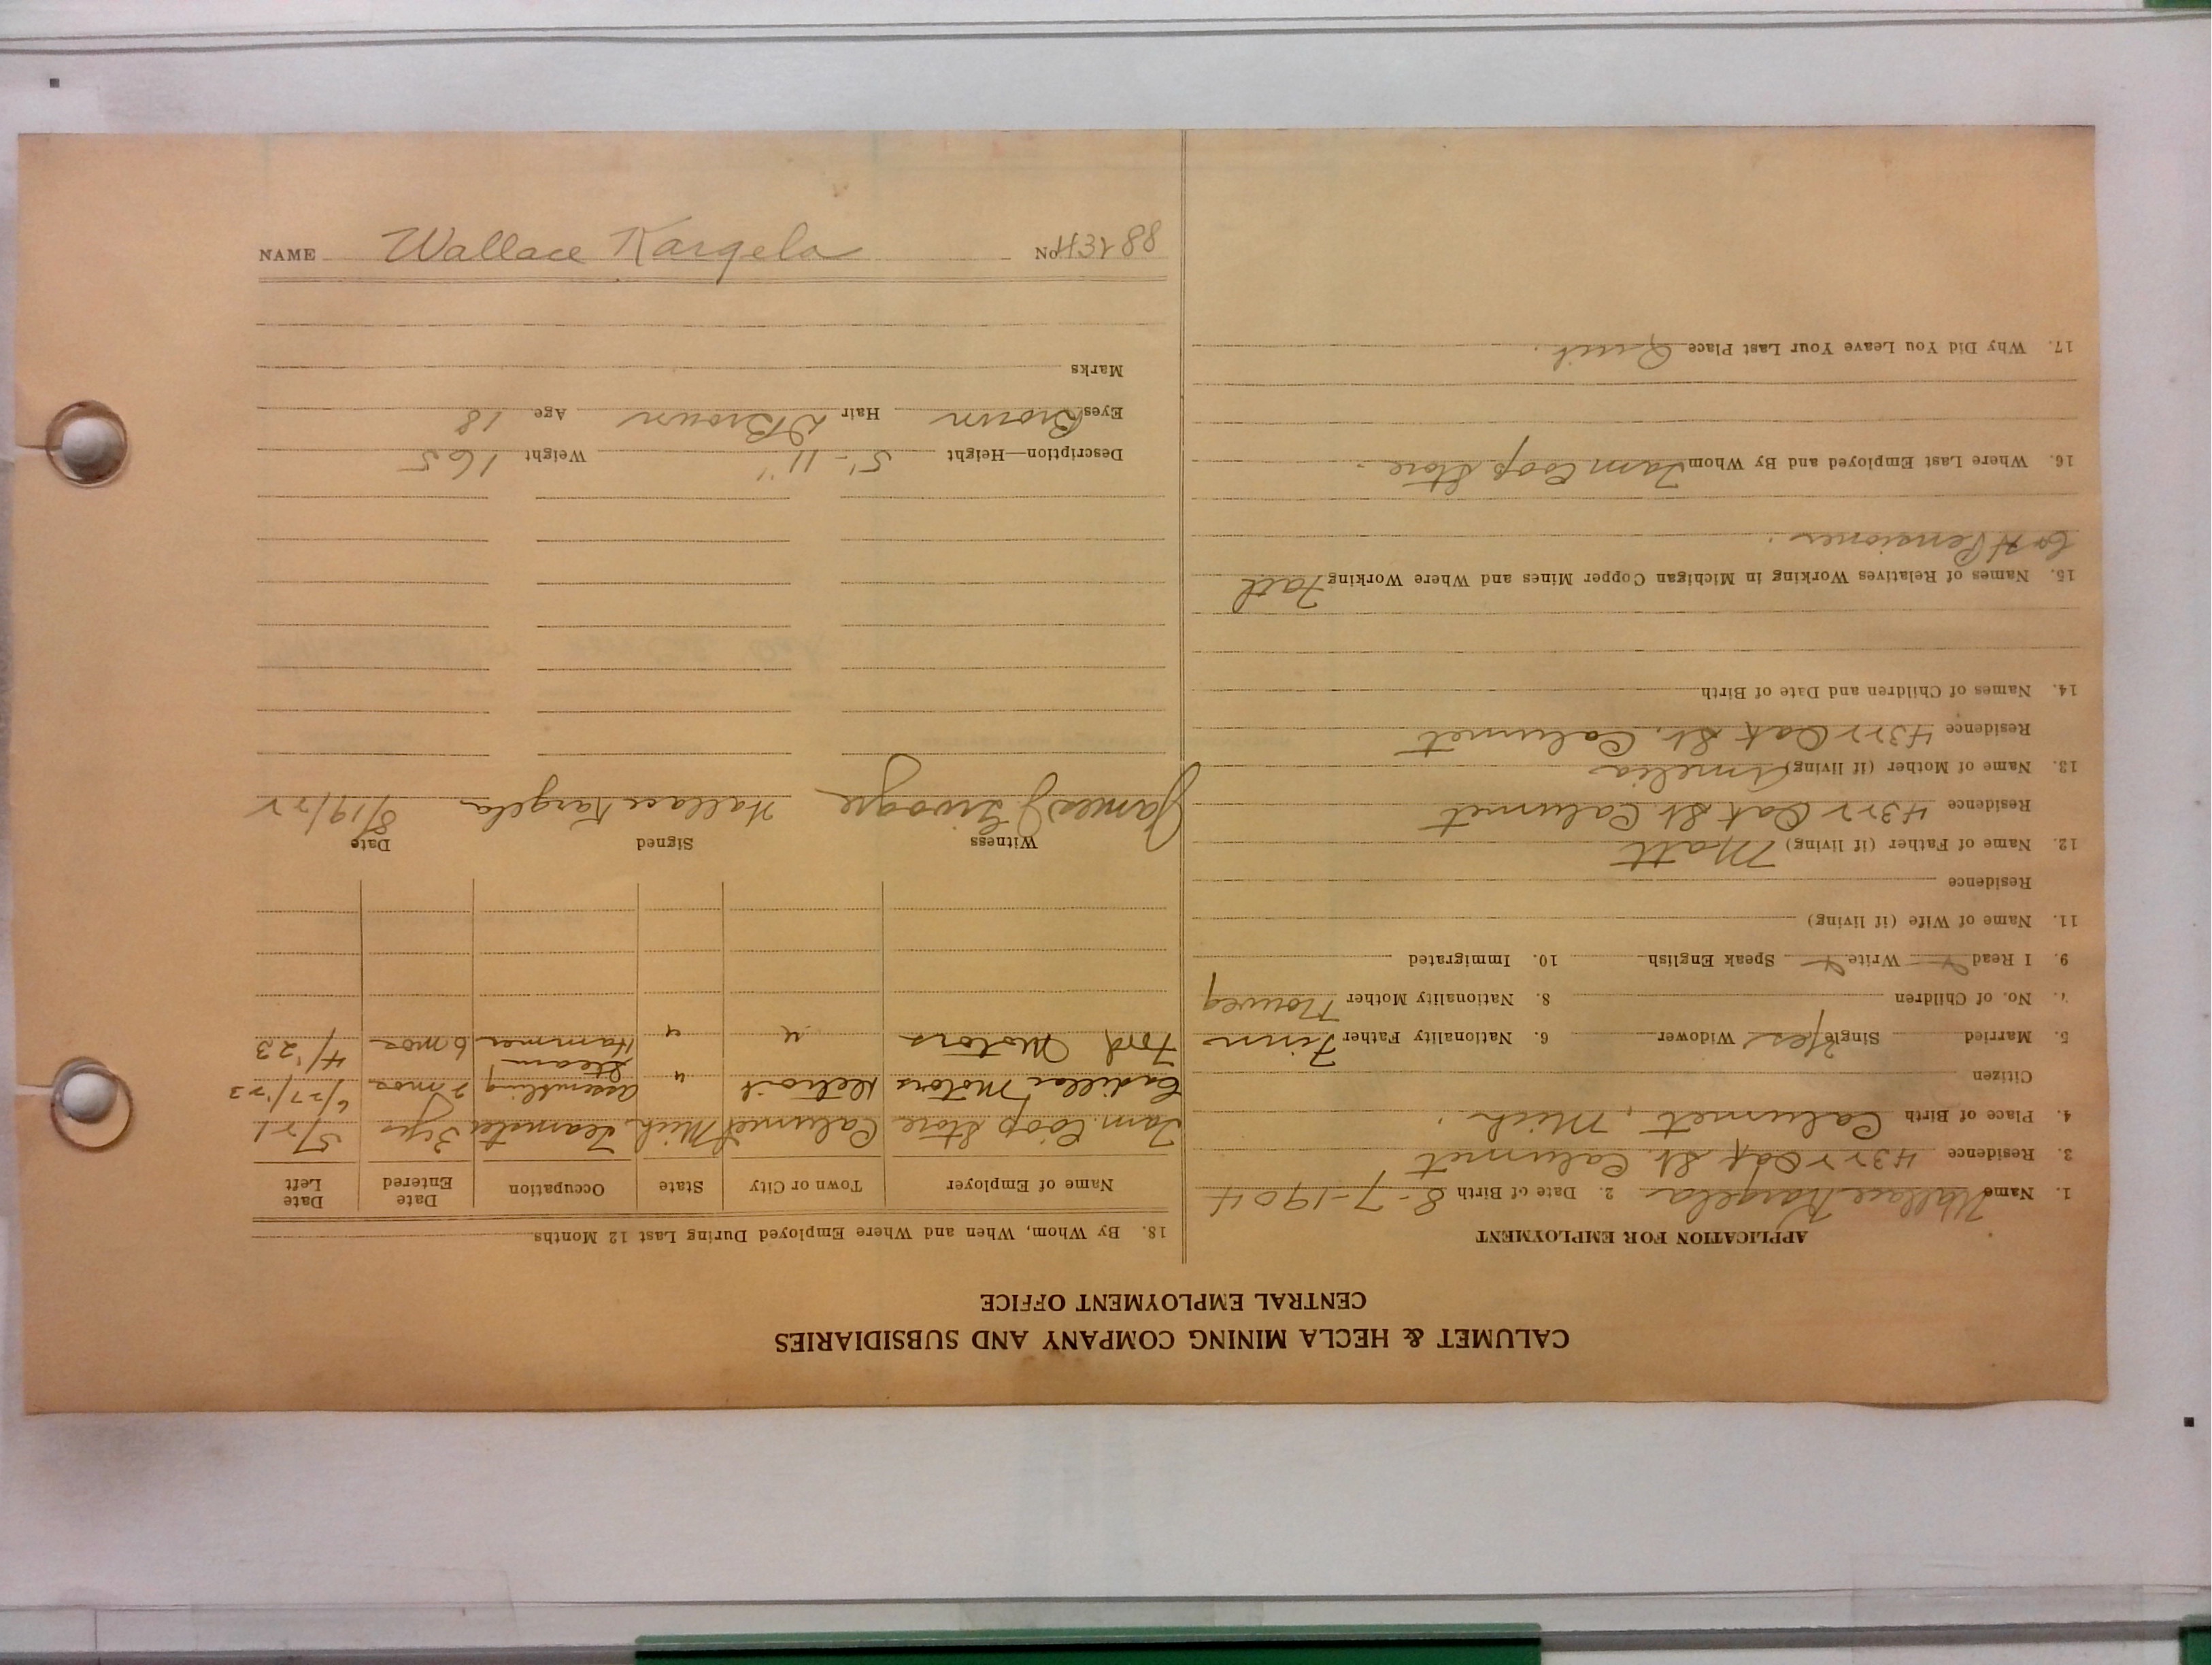 CALUMET & HECLA MINING COMPANY AND SUBSIDIARIES
CENTRAL EMPLOYMENT OFFICE
APPLICATION FOR EMPLOYMENT
1. Name Wallace Kargela 2. Date of Birth 8-7-1904
3. Residence 4322 Oak St. Calumet
4. Place of Birth Calumet, Mich.
Citizen
5. Married Single Yes Widower 6. Nationality Father Finn
7. No. of Children 8. Nationality Mother Norweg
9. I Read Y Write Y Speak English 10. Immigrated
11. Name of Wife (if living)
Residence
12. Name of Father (if living) Matt
Residence 4322 Oak St. Calumet
13. Name of Mother (if living) Amelia
Residence 4322 Oak St. Calumet
14. Names of Children and Date of Birth
15. Names of Relatives Working in Michigan Copper Mines and Where Working Fath
C&H Pensioner.
16. Where Last Employed and By Whom Tam Coop Store.
17. Why Did You Leave Your Last Place Quit.
18. By Whom, When and Where Employed During Last 12 Months
Name of Employer Town or City State Occupation Date Entered Date Left
Tam. Coop Store Calumet Mich Teamster 3 yrs 5/21
Cadillac Motors Detroit " assembling 2 mos 6/27/23
Ford Motors " " Steam Hammer 6 mos 4/'23
Witness Signed Date
James J Wallace Kargela 8/19/22
Description—Height 5'-11" Weight 165
Eyes Brown Hair D Brown Age 18
Marks
NAME Wallace Kargela No. 43288